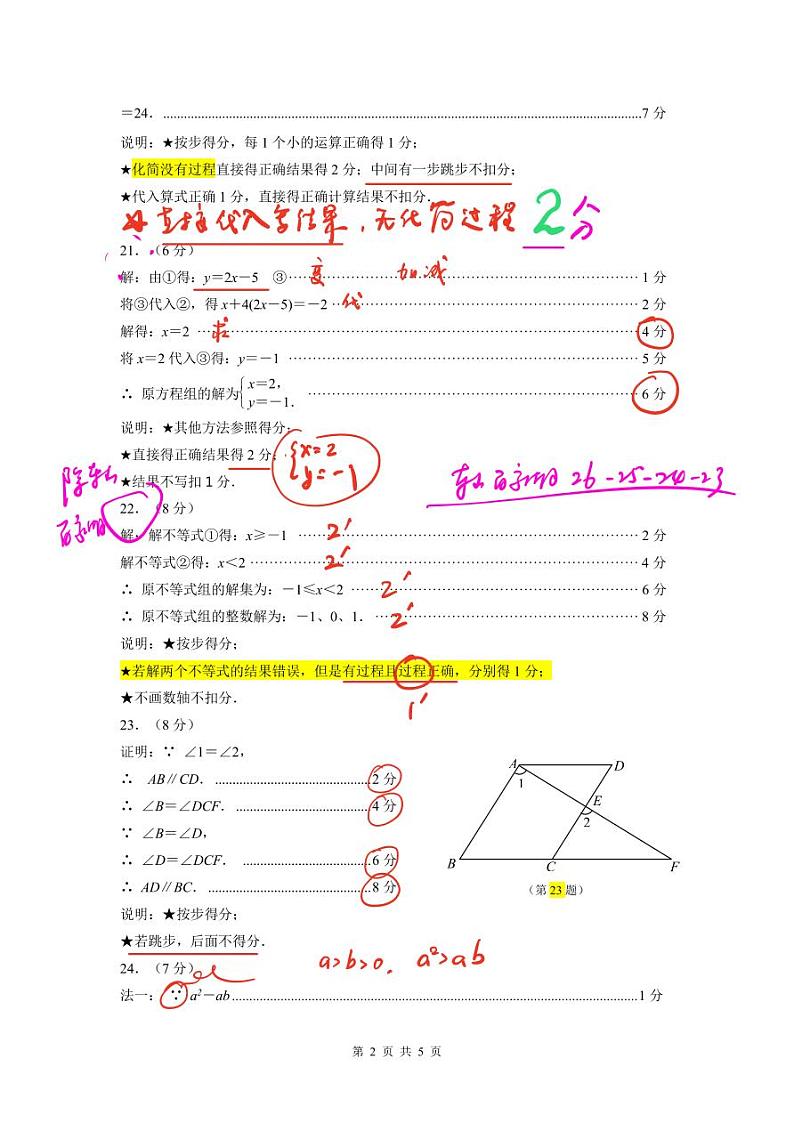 =24. ...7 分
说明：★按步得分，每 1 个小的运算正确得 1 分；
★化简没有过程直接得正确结果得 2 分；中间有一步跳步不扣分；
★代入算式正确 1 分，直接得正确计算结果不扣分．
直接代入写结果，无化简过程 2分
21．（6 分）
解：由①得：y＝2x－5 ③ 变 加减 ··· 1 分
将③代入②，得 x＋4(2x－5)＝－2 代 ··· 2 分
解得：x＝2 求 ··· 4 分
将 x＝2 代入③得：y＝－1 ··· 5 分
∴ 原方程组的解为{x＝2，y＝－1． ··· 6 分
说明：★其他方法参照得分；
★直接得正确结果得 2 分； {x=2 y=-1
★结果不写扣 1 分． 26-25-24-23
22．（8 分）
解：解不等式①得：x≥－1 2′ ··· 2 分
解不等式②得：x＜2 2′ ··· 4 分
∴ 原不等式组的解集为：－1≤x＜2 2′ ··· 6 分
∴ 原不等式组的整数解为：－1、0、1． 2′ ··· 8 分
说明：★按步得分；
★若解两个不等式的结果错误，但是有过程且过程正确，分别得 1 分；
★不画数轴不扣分． 1′
23．（8 分）
证明：∵ ∠1＝∠2，
∴ AB∥CD． ...2 分
∴ ∠B＝∠DCF． ...4 分
∵ ∠B＝∠D，
∴ ∠D＝∠DCF． ...6 分
∴ AD∥BC． ...8 分
A D
1
E
2
B C F
（第 23 题）
说明：★按步得分；
★若跳步，后面不得分．
a>b>0. a²>ab
24．（7 分）
法一：∵ a²－ab ...1 分
第 2 页 共 5 页